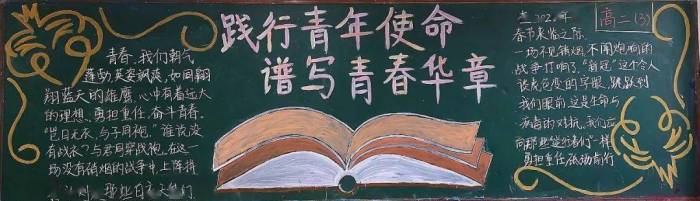 践行青年使命
谱写青春华章
高二(3)
青春,我们朝气
蓬勃,英姿飒爽,如同翱
翔蓝天的雄鹰,心中有着远大
的理想,勇担重任,奋斗青春。
"岂曰无衣,与子同袍。"谁说没
有战衣?与君同穿战袍,在这一
场没有硝烟的战争中上阵搏
那些白衣天使们
春节来临之际
一场不见硝烟,不闻炮响的
战争打响了,"新冠"这个令人
谈
色变的字眼,跳跃到
我们眼前,这是生命与
病毒的对抗,我们应
向那些逆行者们一样
勇担重任,砥砺前行